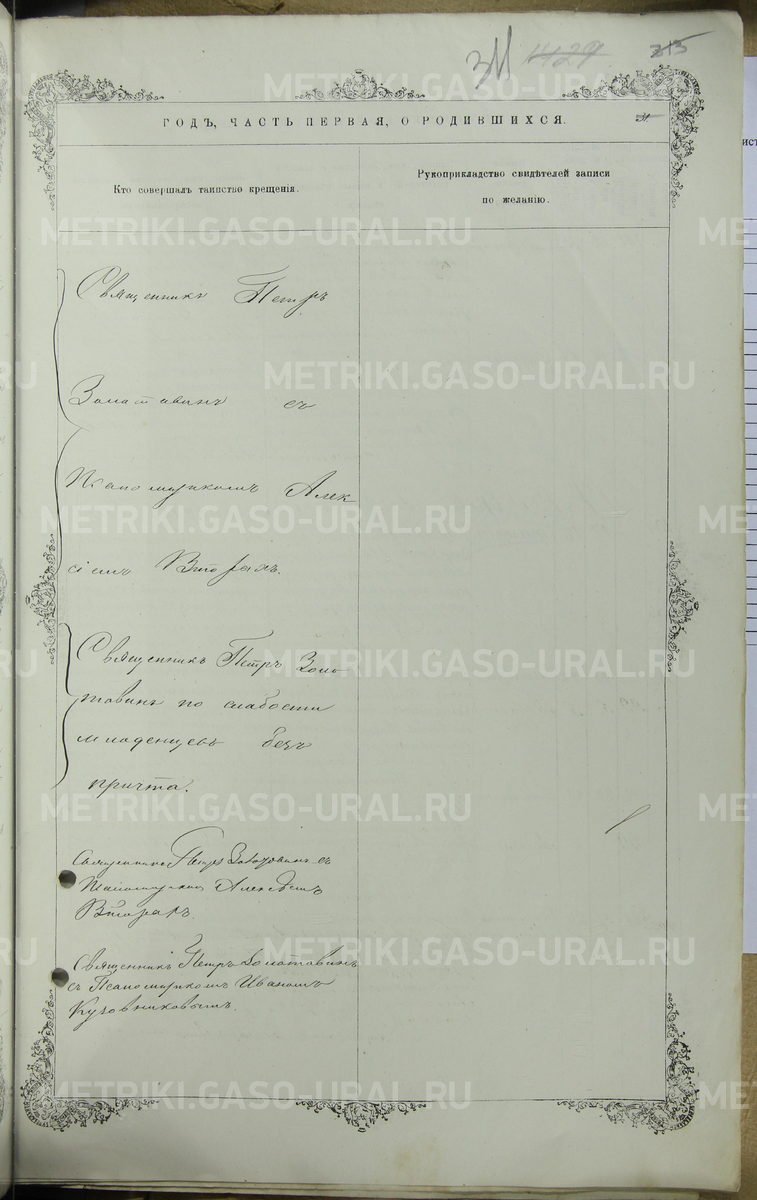 311 1129 215
ГОДЪ, ЧАСТЬ ПЕРВАЯ, О РОДИВШИХСЯ.
Кто совершалъ таинство крещенія.
Рукоприкладство свидѣтелей записи
по желанію.
Священникъ Петръ
Золотавинъ съ
Псаломщикомъ Алек
сіемъ
Священникъ Петръ Золо
тавинъ по слабости
младенцевъ безъ
причта.
Священникъ Петръ Золотавинъ съ
Псаломщикомъ Алексѣемъ
Священникъ Петръ Золотавинъ
съ Псаломщикомъ Иваномъ
Кузовниковымъ.
METRIKI.GASO-URAL.RU